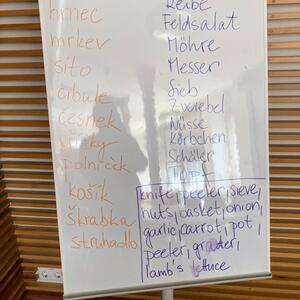 hrnec
mrkev
síto
cibule
česnek
polníček
košík
škrabka
struhadlo
Reibe
Feldsalat
Möhre
Messer
Sieb
Zwiebel
Nüsse
Körbchen
Schäler
Topf
knife, peeler, sieve,
nuts, basket, onion,
garlic, carrot, pot,
peeler, grater,
lamb's lettuce